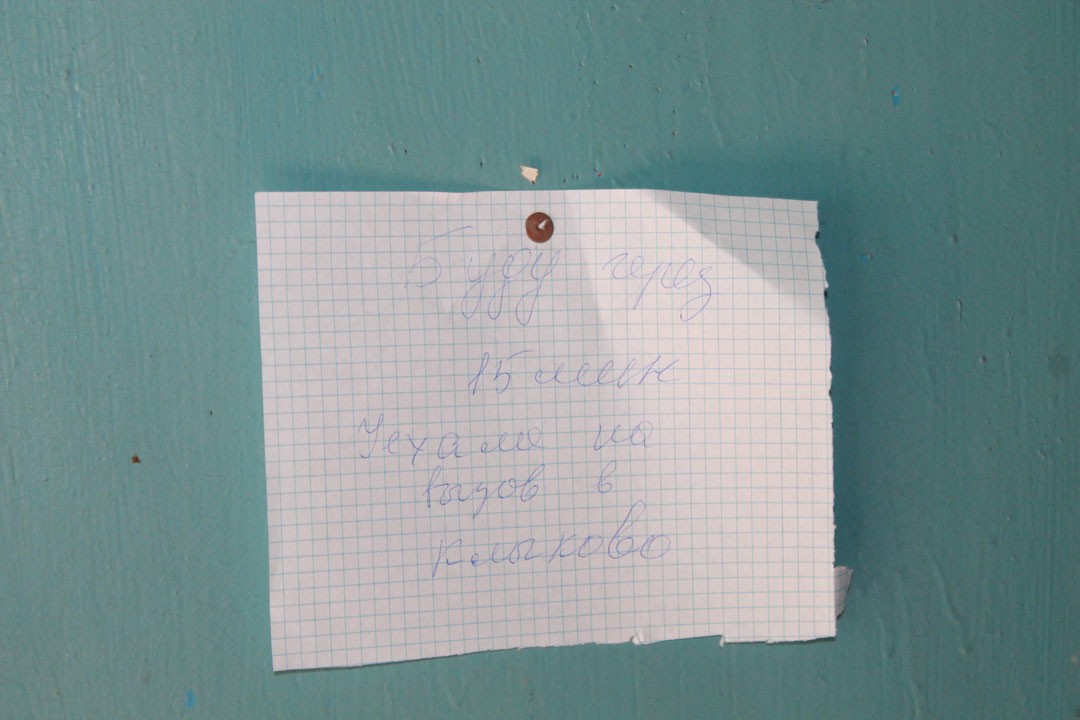 Буду через
15 мин
Уехала на
вызов в
Клыково